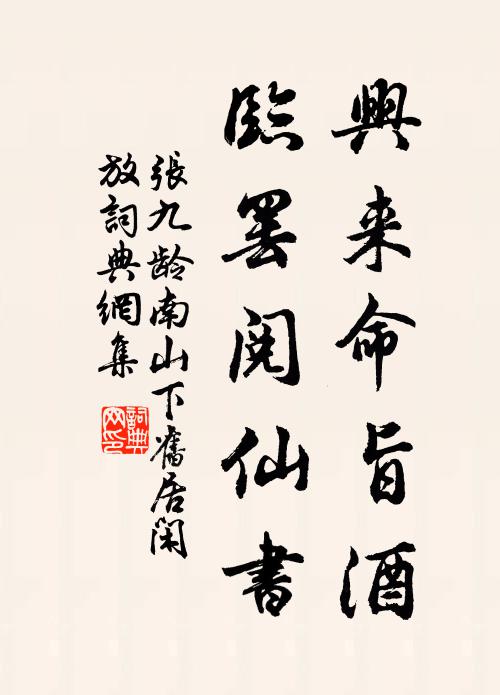 興来命旨酒
臨罷閱仙書
張九龄南山下舊居閑
放詞典網集
詞典网印